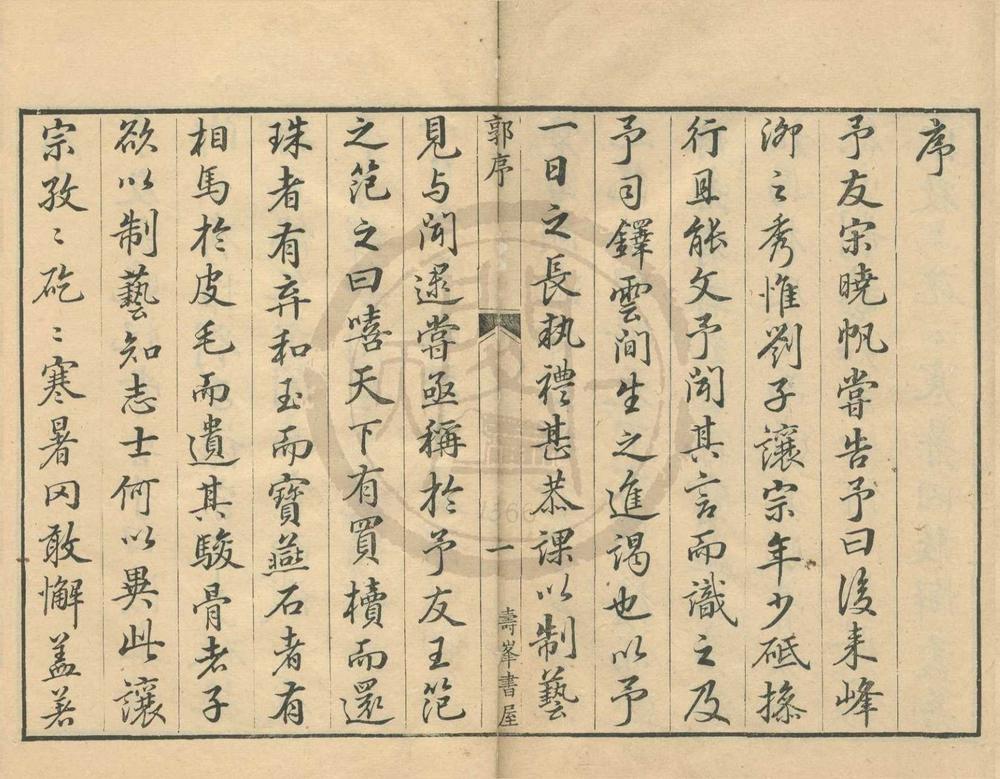 序
予友宋曉帆嘗告予曰後来峰
泖之秀惟劉子讓宗年少砥操
行且能文予聞其言而識之及
予司鐸雲間生之進謁也以予
一日之長執禮甚恭課以制藝
郭序
一
壽峯書屋
見与聞遝嘗亟稱於予友王范
之范之曰嘻天下有買櫝而還
珠者有弃和玉而寶燕石者有
相馬於皮毛而遺其駿骨者子
欲以制藝知志士何以異此讓
宗孜〻矻〻寒暑罔敢懈蓋著